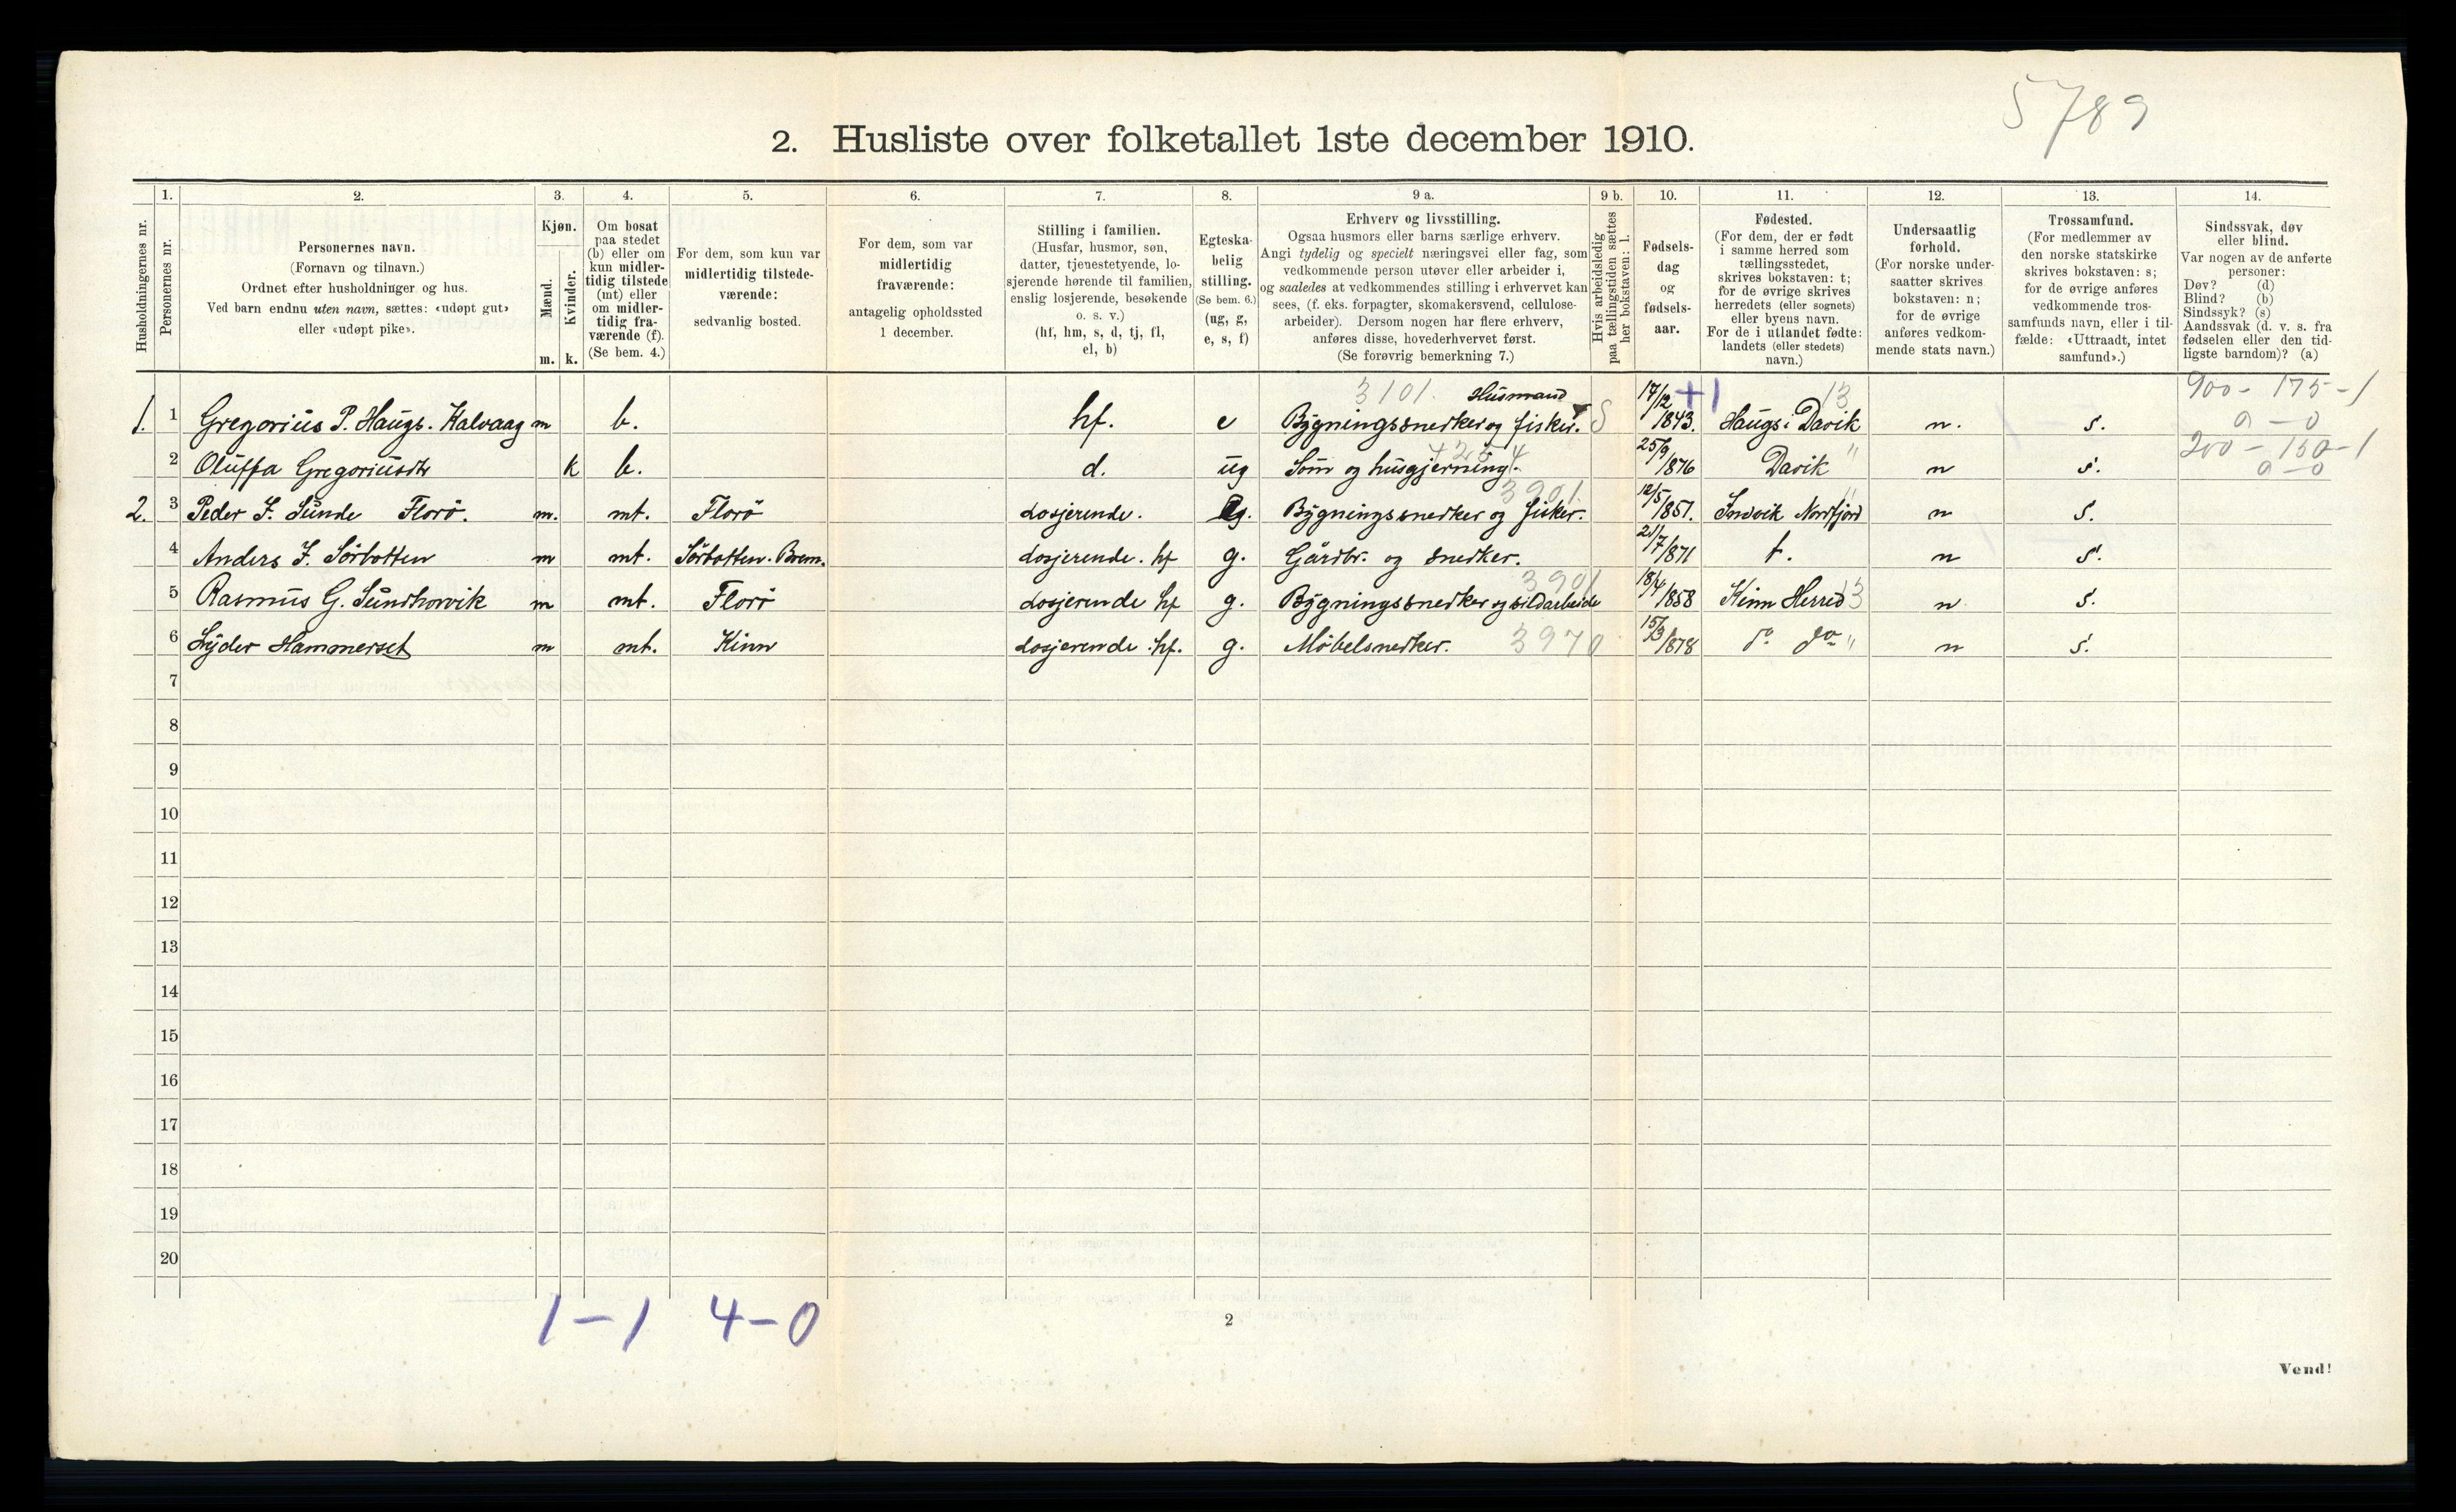 5789
2. Husliste over folketallet 1ste december 1910.
1. 2. 3. 4. 5. 6. 7. 8. 9 a. 9 b. 10. 11. 12. 13. 14.
Husholdningernes nr.
Personernes nr.
Personernes navn.
(Fornavn og tilnavn.)
Ordnet efter husholdninger og hus.
Ved barn endnu uten navn, sættes: «udøpt gut»
eller «udøpt pike».
Kjøn.
Mænd.
Kvinder.
m. k.
Om bosat
paa stedet
(b) eller om
kun midler-
tidig tilstede
(mt) eller
om midler-
tidig fra-
værende (f).
(Se bem. 4.)
For dem, som kun var
midlertidig tilstede-
værende:
sedvanlig bosted.
For dem, som var
midlertidig
fraværende:
antagelig opholdssted
1 december.
Stilling i familien.
(Husfar, husmor, søn,
datter, tjenestetyende, lo-
sjerende hørende til familien,
enslig losjerende, besøkende
o. s. v.)
(hf, hm, s, d, tj, fl,
el, b)
Egteska-
belig
stilling.
(Se bem. 6.)
(ug, g,
e, s, f)
Erhverv og livsstilling.
Ogsaa husmors eller barns særlige erhverv.
Angi tydelig og specielt næringsvei eller fag, som
vedkommende person utøver eller arbeider i,
og saaledes at vedkommendes stilling i erhvervet kan
sees, (f. eks. forpagter, skomakersvend, cellulose-
arbeider). Dersom nogen har flere erhverv,
anføres disse, hovederhvervet først.
(Se forøvrig bemerkning 7.)
Hvis arbeidsledig
paa tællingstiden sættes
her bokstaven: l.
Fødsels-
dag
og
fødsels-
aar.
Fødested.
(For dem, der er født
i samme herred som
tællingsstedet,
skrives bokstaven: t;
for de øvrige skrives
herredets (eller sognets)
eller byens navn.
For de i utlandet fødte:
landets (eller stedets)
navn.)
Undersaatlig
forhold.
(For norske under-
saatter skrives
bokstaven: n;
for de øvrige
anføres vedkom-
mende stats navn.)
Trossamfund.
(For medlemmer av
den norske statskirke
skrives bokstaven: s;
for de øvrige anføres
vedkommende tros-
samfunds navn, eller i til-
fælde: «Uttraadt, intet
samfund».)
Sindssvak, døv
eller blind.
Var nogen av de anførte
personer:
Døv? (d)
Blind? (b)
Sindssyk? (s)
Aandssvak (d. v. s. fra
fødselen eller den tid-
ligste barndom)? (a)
3101. Husmand +1 13 900 - 175 - 1
1. 1 Gregorius P. Haugs. Kalvaag m b. hf. e Bygningssnedker og fisker. S 17/12 1843. Haugs i Davik n. s. 0 - 0
4254 200 - 150 - 1
2 Oluffa Gregoriusdtr k b. d. ug Søm og husgjerning. 25/9 1876 Davik " n s. 0 - 0
3901.
2. 3 Peder J. Sunde Florö. m. mt. Florö Losjerende. g. Bygningssnedker og fisker. 12/5 1851. Indvik Nordfjord " n s.
4 Anders J. Sörbotten m mt. Sörbotten. Brem. Losjerende. hf g. Gårdbr. og snedker. 21/7 1871 t. n s.
3901
5 Rasmus G. Sundhovvik m mt. Florö Losjerende hf g. Bygningssnedker og sildarbeide 18/4 1858 Kinn Herred 3 n s.
6 Lyder Hammerset m mt. Kinn Losjerende hf. g. Møbelsnedker. 3970 15/3 1878 do do " n s.
7
8
9
10
11
12
13
14
15
16
17
18
19
20
1 - 1 4 - 0
2
Vend!